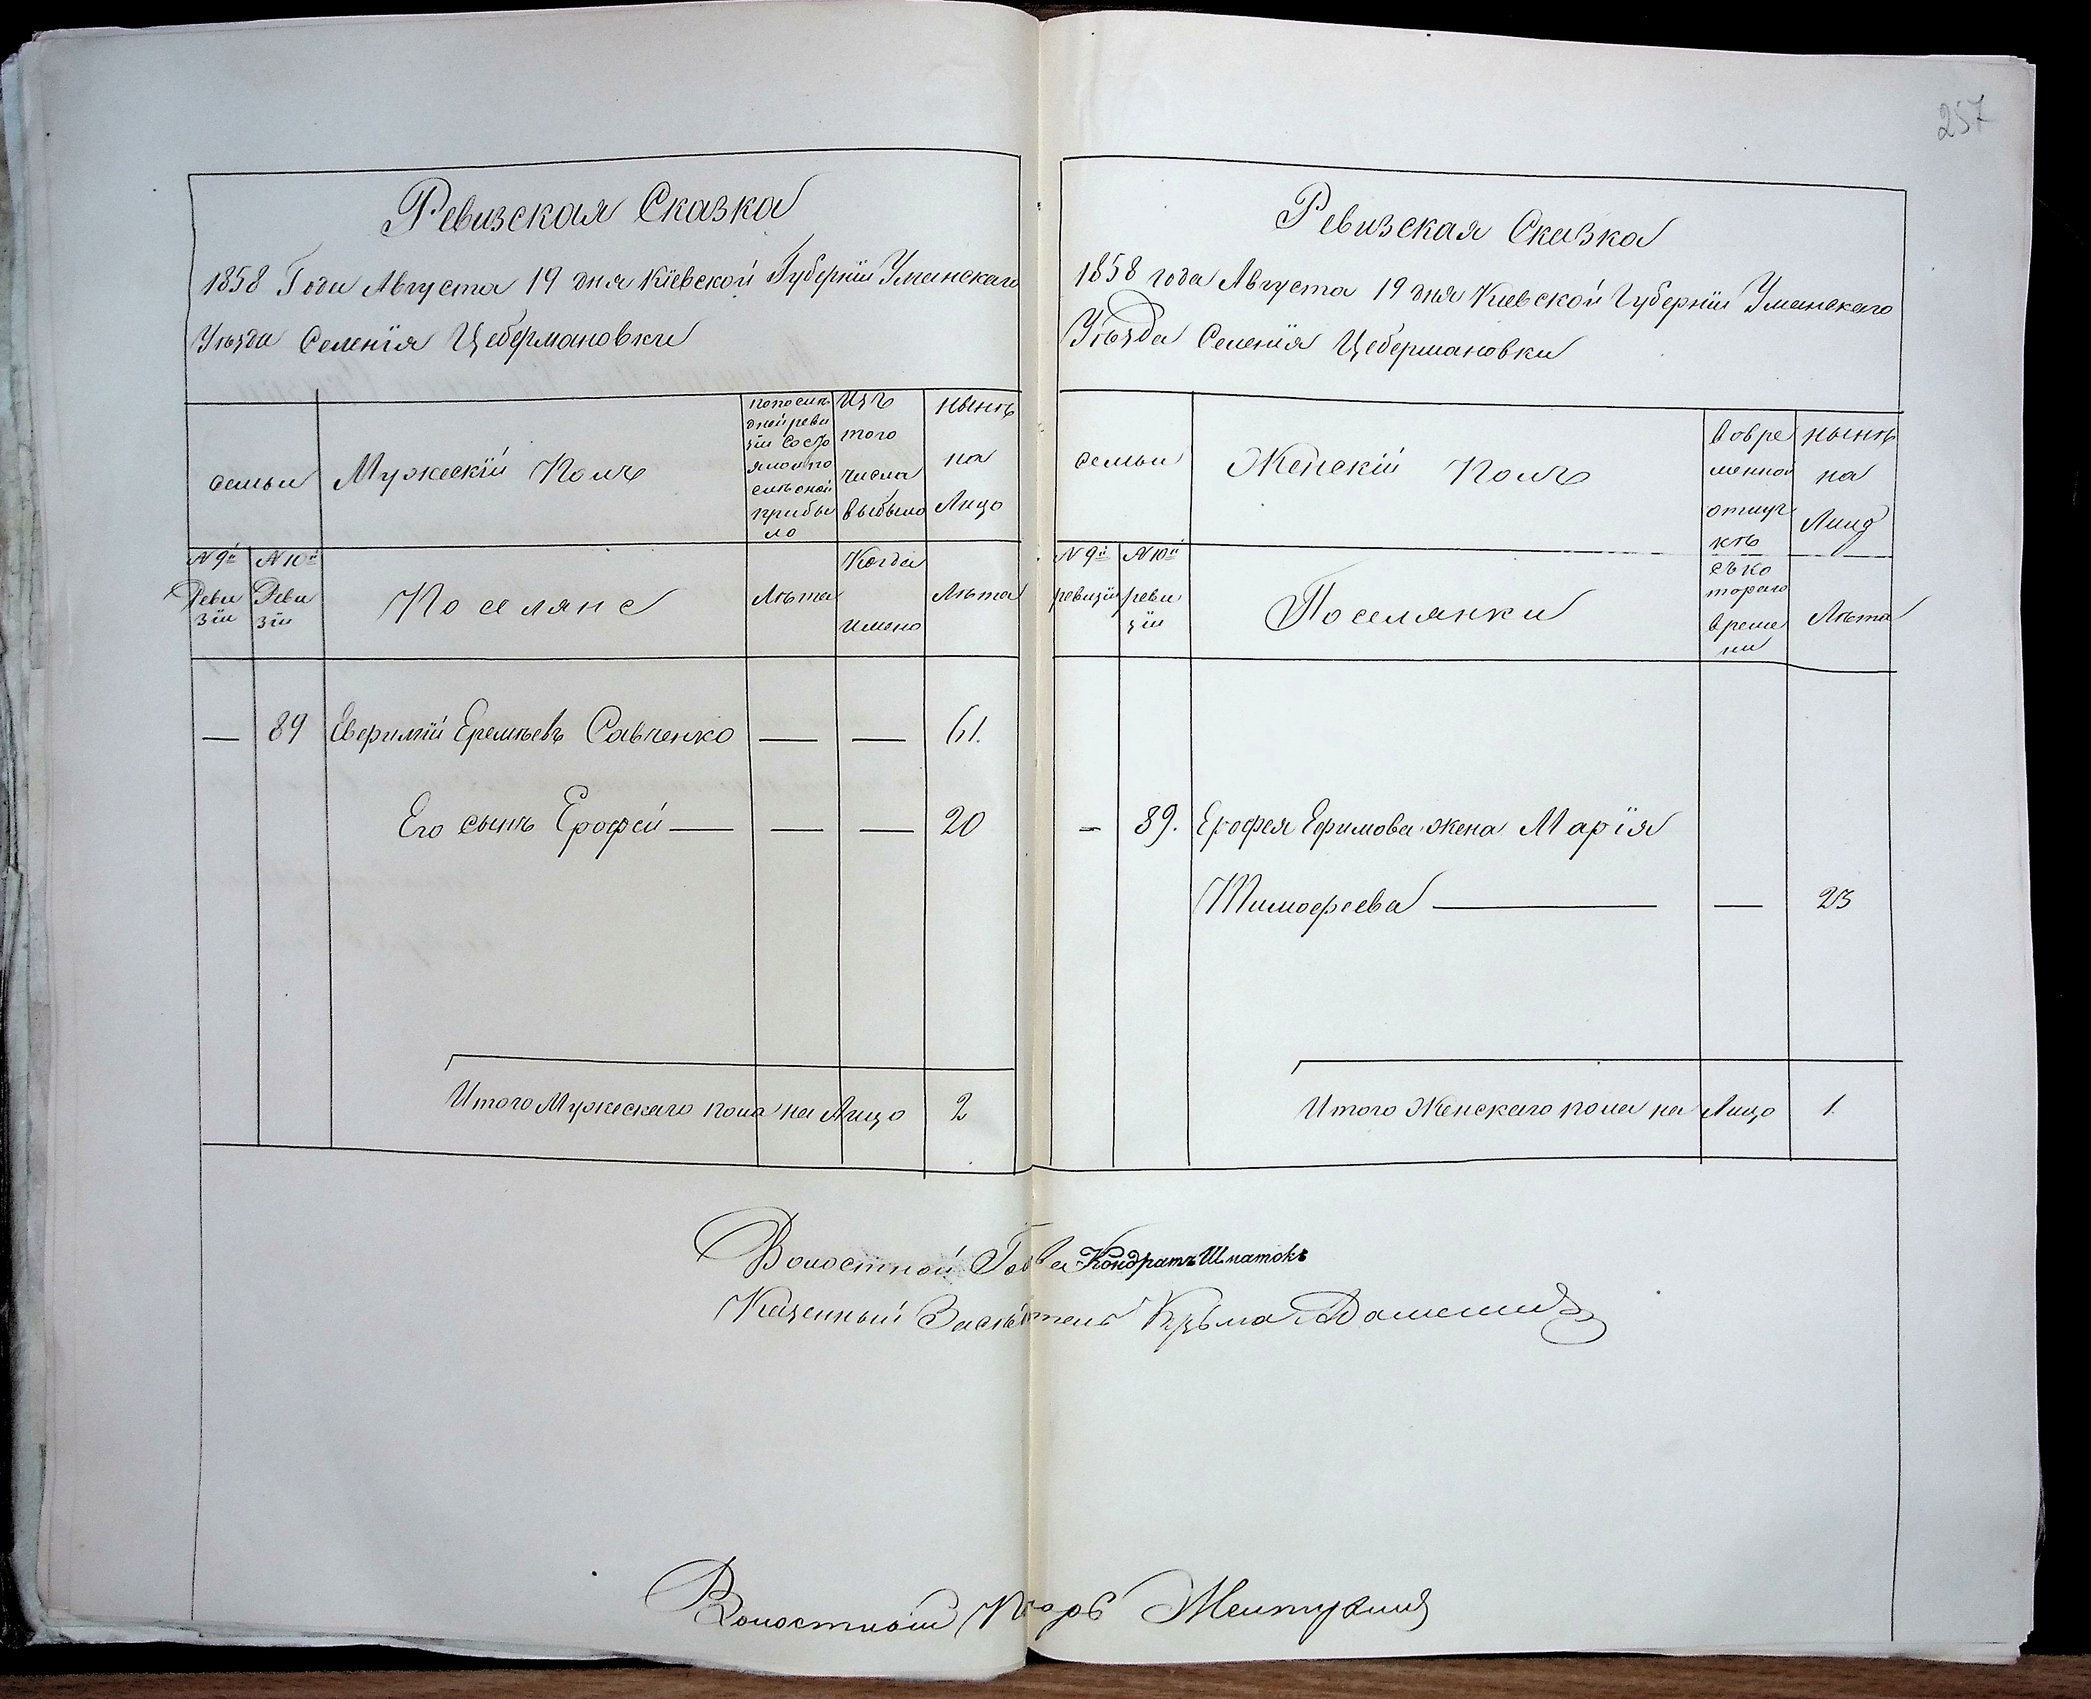 257
Ревизская Сказка
1858 Года Августа 19 дня Кіевской Губерніи Уманскаго
Уѣзда Селенія Цеберманoвки
семьи
Мужескій Полъ
изъ
того
числа
выбыло
нынѣ
на
Лицо
N 9й
Реви
зіи
N 10й
Реви
зіи
Поселяне
Лѣта
Когда
имено
Лѣта
—
89
Еверимій Еремѣевъ Савченко — —
61.
Его сынъ Ерофей — — —
20
Итого Мужескаго пола на Лицо
2
Ревизская Сказка
1858 года Августа 19 дня Киевской Губерніи Уманскаго
Уѣзда Селенія Цебермановки
семьи
Женскій Полъ
во вре
менной
отлуч
кѣ
нынѣ
на
Лицо
N 9й
ревизіи
N 10й
реви
зіи
Поселянки
съ ко
тораго
време
ни
Лѣта
—
89.
Ерофея Ефимова жена Марія
Тимофеева — —
23
Итого Женскаго пола на Лицо
1.
Волостной Голова Кондратъ Шматокъ
Кузьма
Волостный